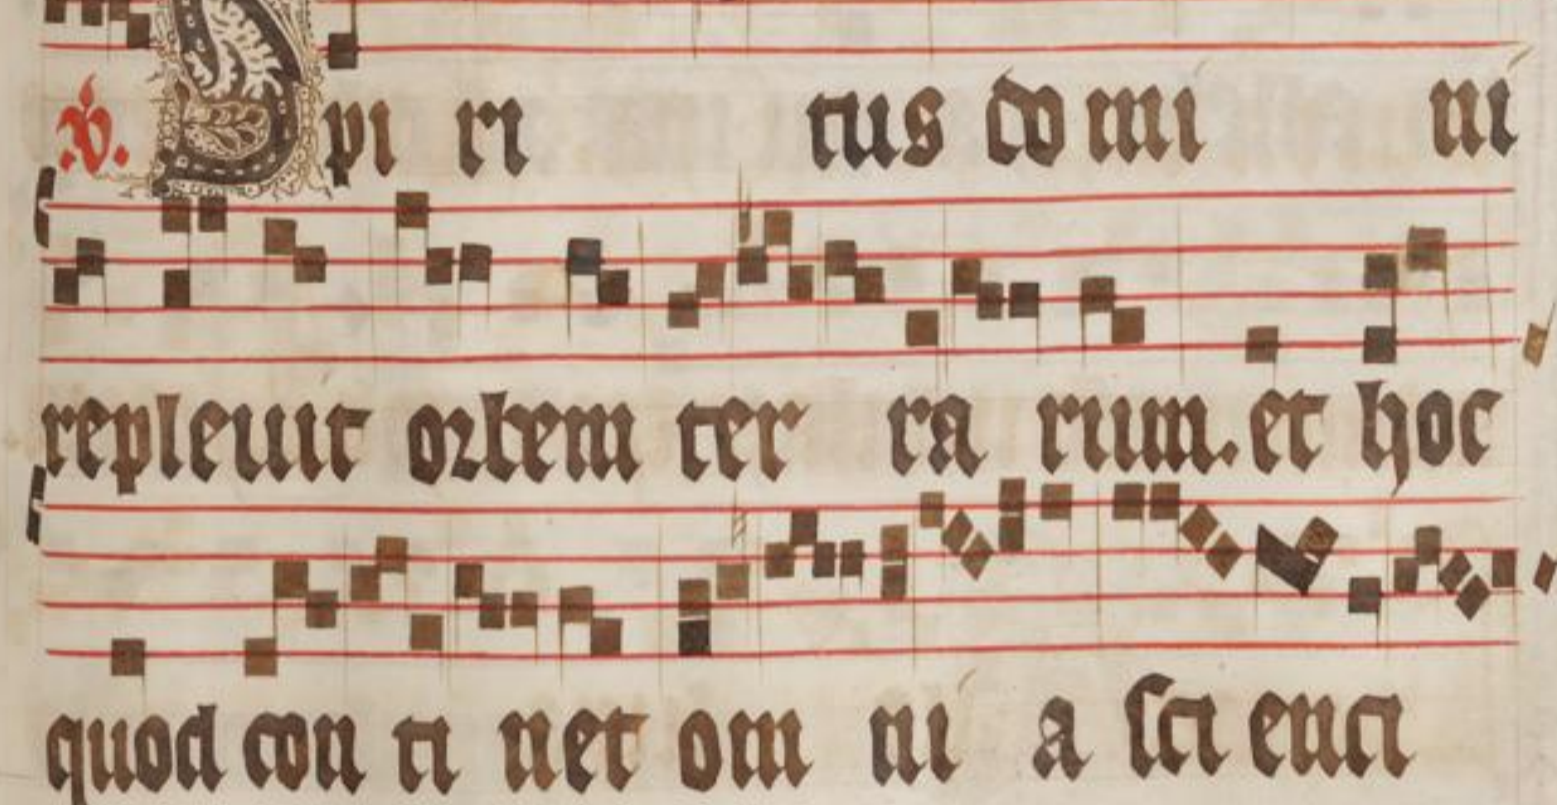 ℣. Spi ri tus do mi ni
repleuit orbem ter ra rum. et hoc
quod con ti net om ni a sci enci